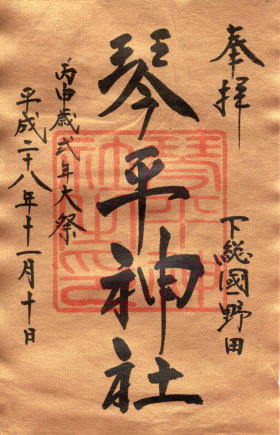 奉拝
下総國野田
琴平神社
丙申歳式年大祭
平成二十八年十一月十日